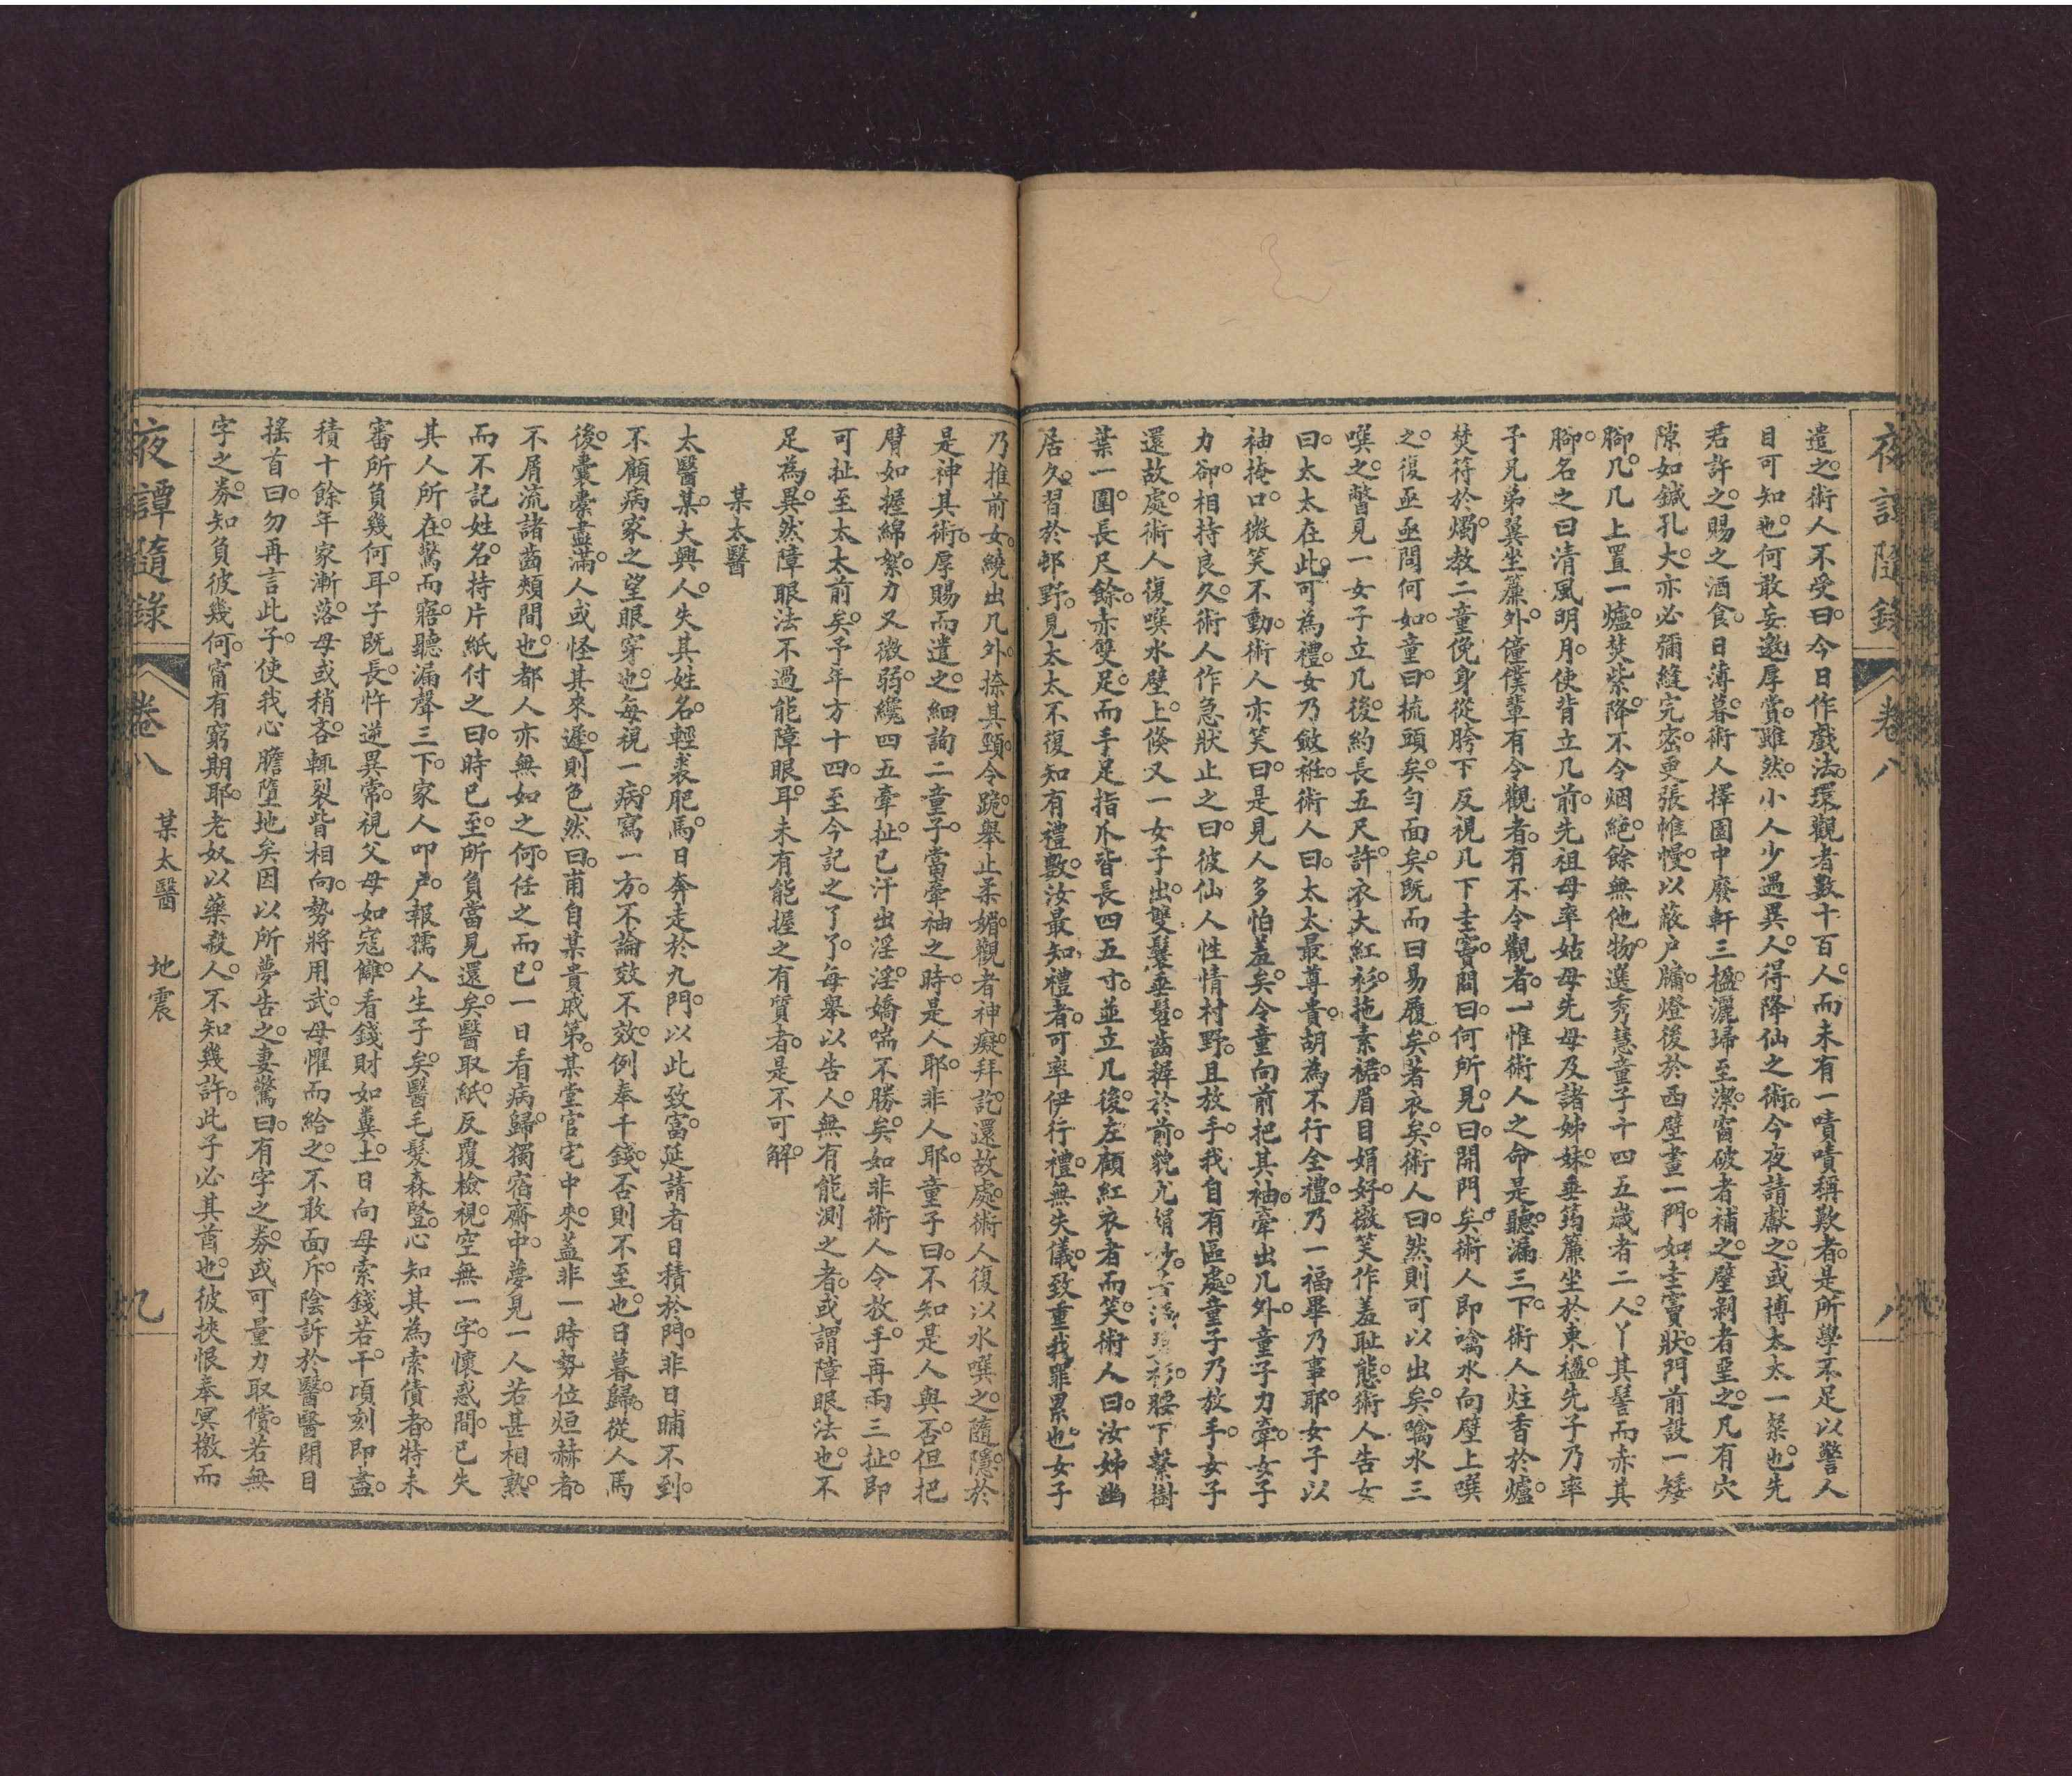 夜譚隨錄
卷八
八
遣之。術人不受曰。今日作戲法。環觀者數十百人。而未有一嘖嘖稱歎者。是所學不足以警人
目可知也。何敢妄邀厚賞。雖然。小人少遇異人。得降仙之術。今夜請獻之。或博太太一粲也。先
君許之。賜之酒食。日薄暮。術人擇園中廢軒三楹。灑埽至潔。窗破者補之。壁剝者堊之。凡有穴
隙如鍼孔大。亦必彌縫完密。更張帷幔。以蔽戶牖。燈後於西壁畫一門。如圭竇狀。門前設一矮
腳几。几上置一爐。焚紫降。不令烟絕。餘無他物。選秀慧童子十四五歲者二人。丫其髻而赤其
腳。名之曰清風明月。使背立几前。先祖母率姑母先母及諸姊妹。垂筠簾坐於東楹。先子乃率
子兄弟翼坐簾外。僮僕輩有令觀者。有不令觀者。一惟術人之命是聽。漏三下。術人炷香於爐。
焚符於燭。教二童俛身從胯下反視几下圭竇。問曰。何所見。曰。開門矣。術人即噙水向壁上噀
之。復亟亟問何如。童曰。梳頭矣。勻面矣。既而曰。易履矣。著衣矣。術人曰。然則可以出矣。噙水三
噀之。瞥見一女子立几後。約長五尺許。衣大紅衫。拖素裙。眉目娟好。微笑作羞耻態。術人告女
曰。太太在此。可為禮。女乃斂袵。術人曰。太太最尊貴。胡為不行全禮。乃一福畢乃事耶。女子以
袖掩口。微笑不動。術人亦笑曰。是見人多怕羞矣。令童向前把其袖。牽出几外。童子力牽。女子
力卻。相持良久。術人作急狀止之曰。彼仙人性情村野。且放手。我自有區處。童子乃放手。女子
還故處。術人復噀水壁上。倏又一女子出。雙鬟垂髫。齒穉於前。貌尤娟妙。衫。腰下繫樹
葉一圍。長尺餘。赤雙足。而手足指爪皆長四五寸。並立几後。左顧紅衣者而笑。術人曰。汝姊幽
居久。習於邨野。見太太不復知有禮數。汝最知禮者。可率伊行禮。無失儀。致重我罪累也。女子
乃推前女。繞出几外。捺其頸。令跪。舉止柔媚。觀者神癡。拜訖。還故處。術人復以水噀之。隨隱於
是神其術。厚賜而遣之。細詢二童子。當牽袖之時。是人耶。非人耶。童子曰。不知是人與否。但把
臂如握綿絮。力又微弱。纔四五牽扯。已汗出淫淫。嬌喘不勝矣。如非術人令放手。再兩三扯。即
可扯至太太前矣。予年方十四。至今記之了了。每舉以告人。無有能測之者。或謂障眼法也。不
足為異。然障眼法不過能障眼耳。未有能握之有質者。是不可解。
某太醫
太醫某。大興人。失其姓名。輕裘肥馬。日奔走於九門。以此致富。延請者日積於門。非日晡不到。
不顧病家之望眼穿也。每視一病。寫一方。不論效不效。例奉千錢。否則不至也。日暮歸。從人馬
後。囊橐盡滿。人或怪其來遲。則色然曰。甫自某貴戚第。某堂官宅中來。葢非一時勢位烜赫者。
不屑流諸齒頰間也。都人亦無如之何。任之而已。一日看病歸。獨宿齋中。夢見一人若甚相熟。
而不記姓名。持片紙付之。曰。時已至。所負當見還矣。醫取紙。反覆檢視。空無一字。懷惑間。已失
其人所在。驚而寤。聽漏聲三下。家人叩戶。報孺人生子矣。醫毛髮森豎。心知其為索債者。特未
審所負幾何耳。子既長。忤逆異常。視父母如寇讎。看錢財如糞土。日向母索錢若干。頃刻即盡。
積十餘年。家漸落。母或稍吝。輒裂眥相向。勢將用武。母懼而給之。不敢面斥。陰訴於醫。醫閉目
搖首曰。勿再言此子。使我心膽墮地矣。因以所夢告之。妻驚曰。有字之券。或可量力取償。若無
字之券。知負彼幾何。甯有窮期耶。老奴以藥殺人。不知幾許。此子必其酋也。彼挾恨奉冥檄而
夜譚隨錄
卷八
某太醫 地震
九